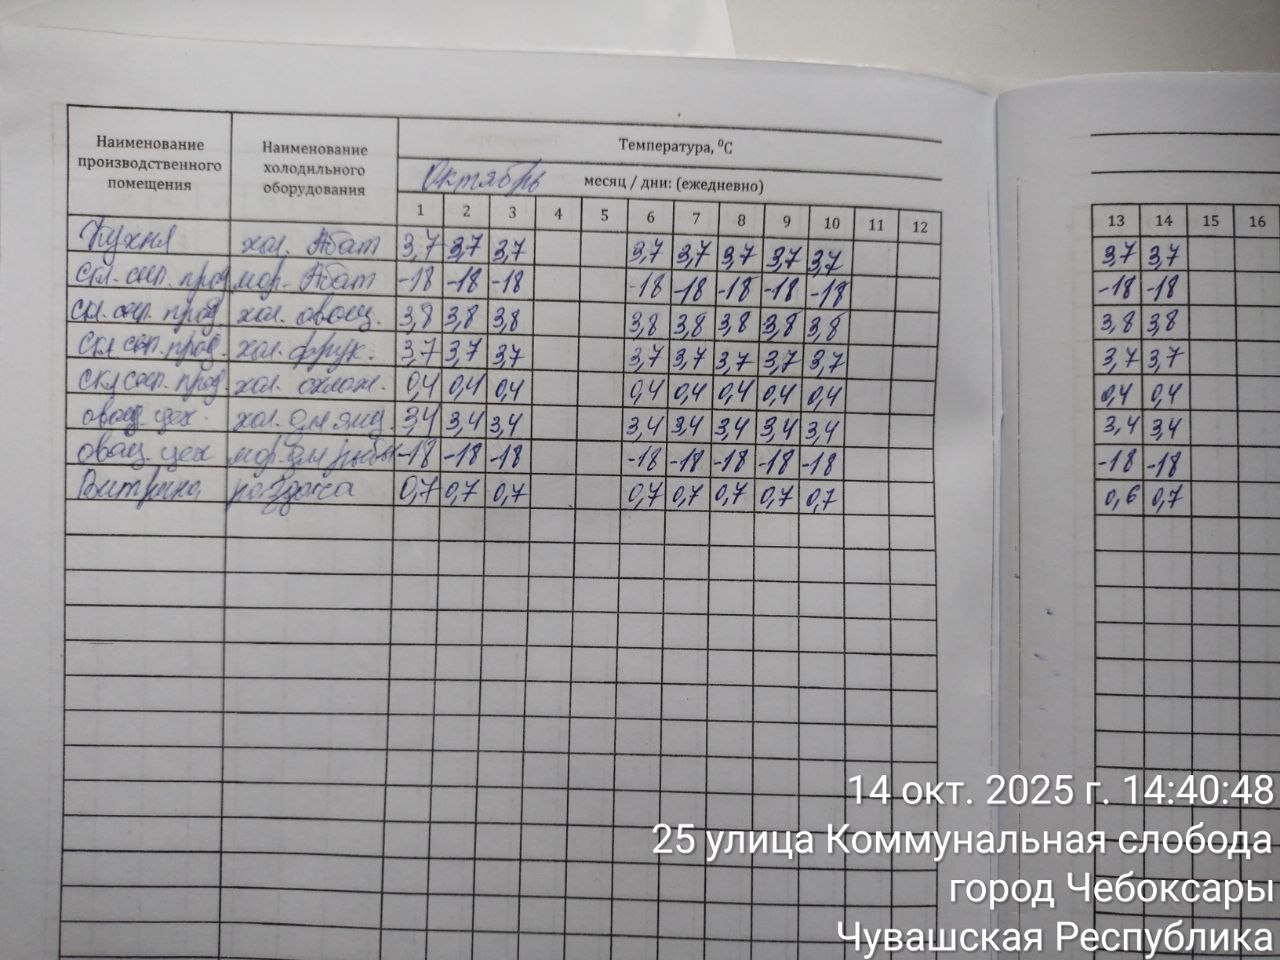 Наименование производственного помещения Наименование холодильного оборудования Температура, ⁰С
Октябрь месяц / дни: (ежедневно)
1 2 3 4 5 6 7 8 9 10 11 12 13 14 15 16
Кухня хол. Абат 3,7 3,7 3,7 3,7 3,7 3,7 3,7 3,7 3,7 3,7
скл. сып. прод. мор. Абат -18 -18 -18 -18 -18 -18 -18 -18 -18 -18
скл. сып. прод. хол. овощ. 3,8 3,8 3,8 3,8 3,8 3,8 3,8 3,8 3,8 3,8
скл сып. прод. хол. фрук. 3,7 3,7 3,7 3,7 3,7 3,7 3,7 3,7 3,7 3,7
скл сып. прод. хол. охлаж. 0,4 0,4 0,4 0,4 0,4 0,4 0,4 0,4 0,4 0,4
овощ. цех. хол. для яиц 3,4 3,4 3,4 3,4 3,4 3,4 3,4 3,4 3,4 3,4
овощ. цех мор. для рыбы -18 -18 -18 -18 -18 -18 -18 -18 -18 -18
Витрина раздача 0,7 0,7 0,7 0,7 0,7 0,7 0,7 0,7 0,6 0,7
14 окт. 2025 г. 14:40:48
25 улица Коммунальная слобода
город Чебоксары
Чувашская Республика